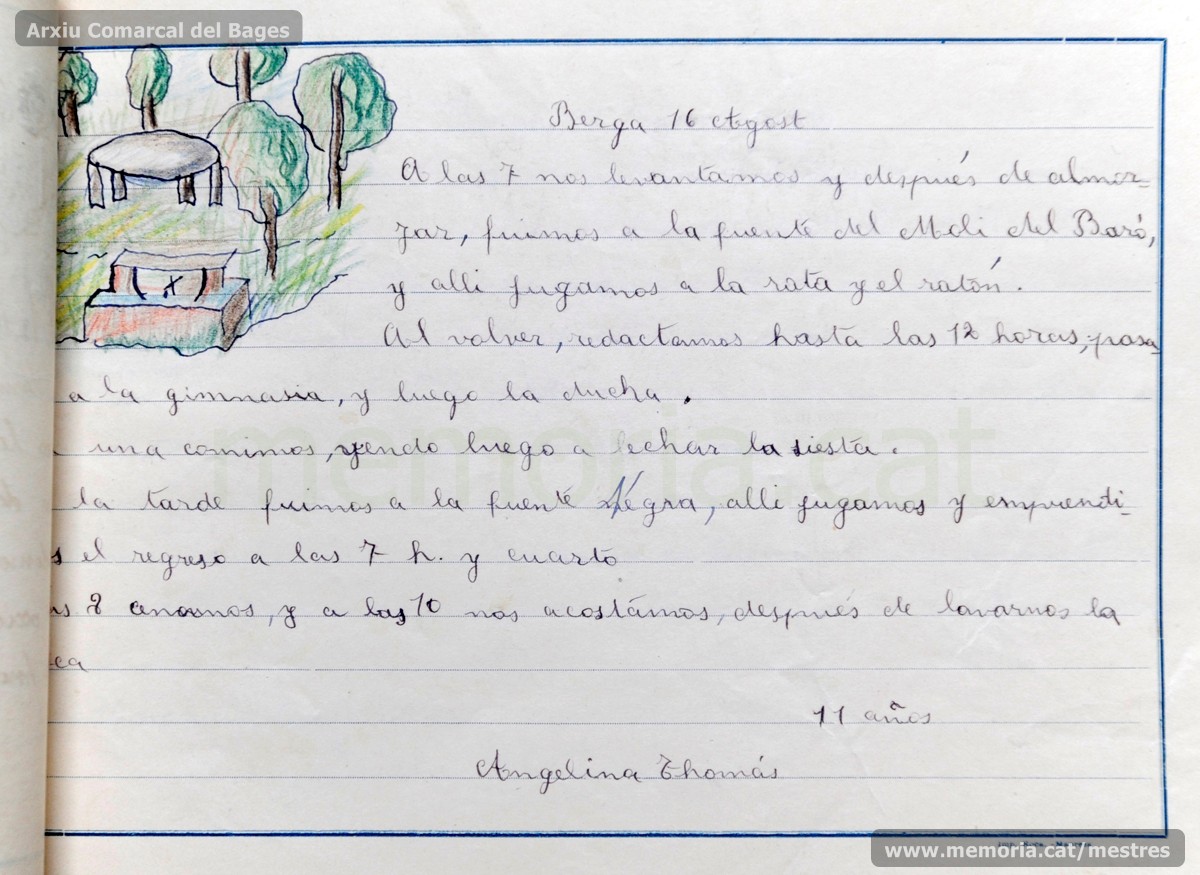 Arxiu Comarcal del Bages
Berga 16 Agost
A las 7 nos levantamos y después de almor-
zar, fuimos a la fuente del Moli del Baró,
y alli jugamos a la rata y el ratón.
Al volver, redactamos hasta las 12 horas, pasa
a la gimnasia, y luego la ducha.
una comimos, yendo luego a hechar la siesta.
la tarde fuimos a la fuente Negra, alli jugamos y emprendi-
s el regreso a las 7 h. y cuarto
as 8 cenamos, y a las 10 nos acostámos, después de lavarnos la
ca
11 años
Angelina Thomás
memoria.cat
www.memoria.cat/mestres